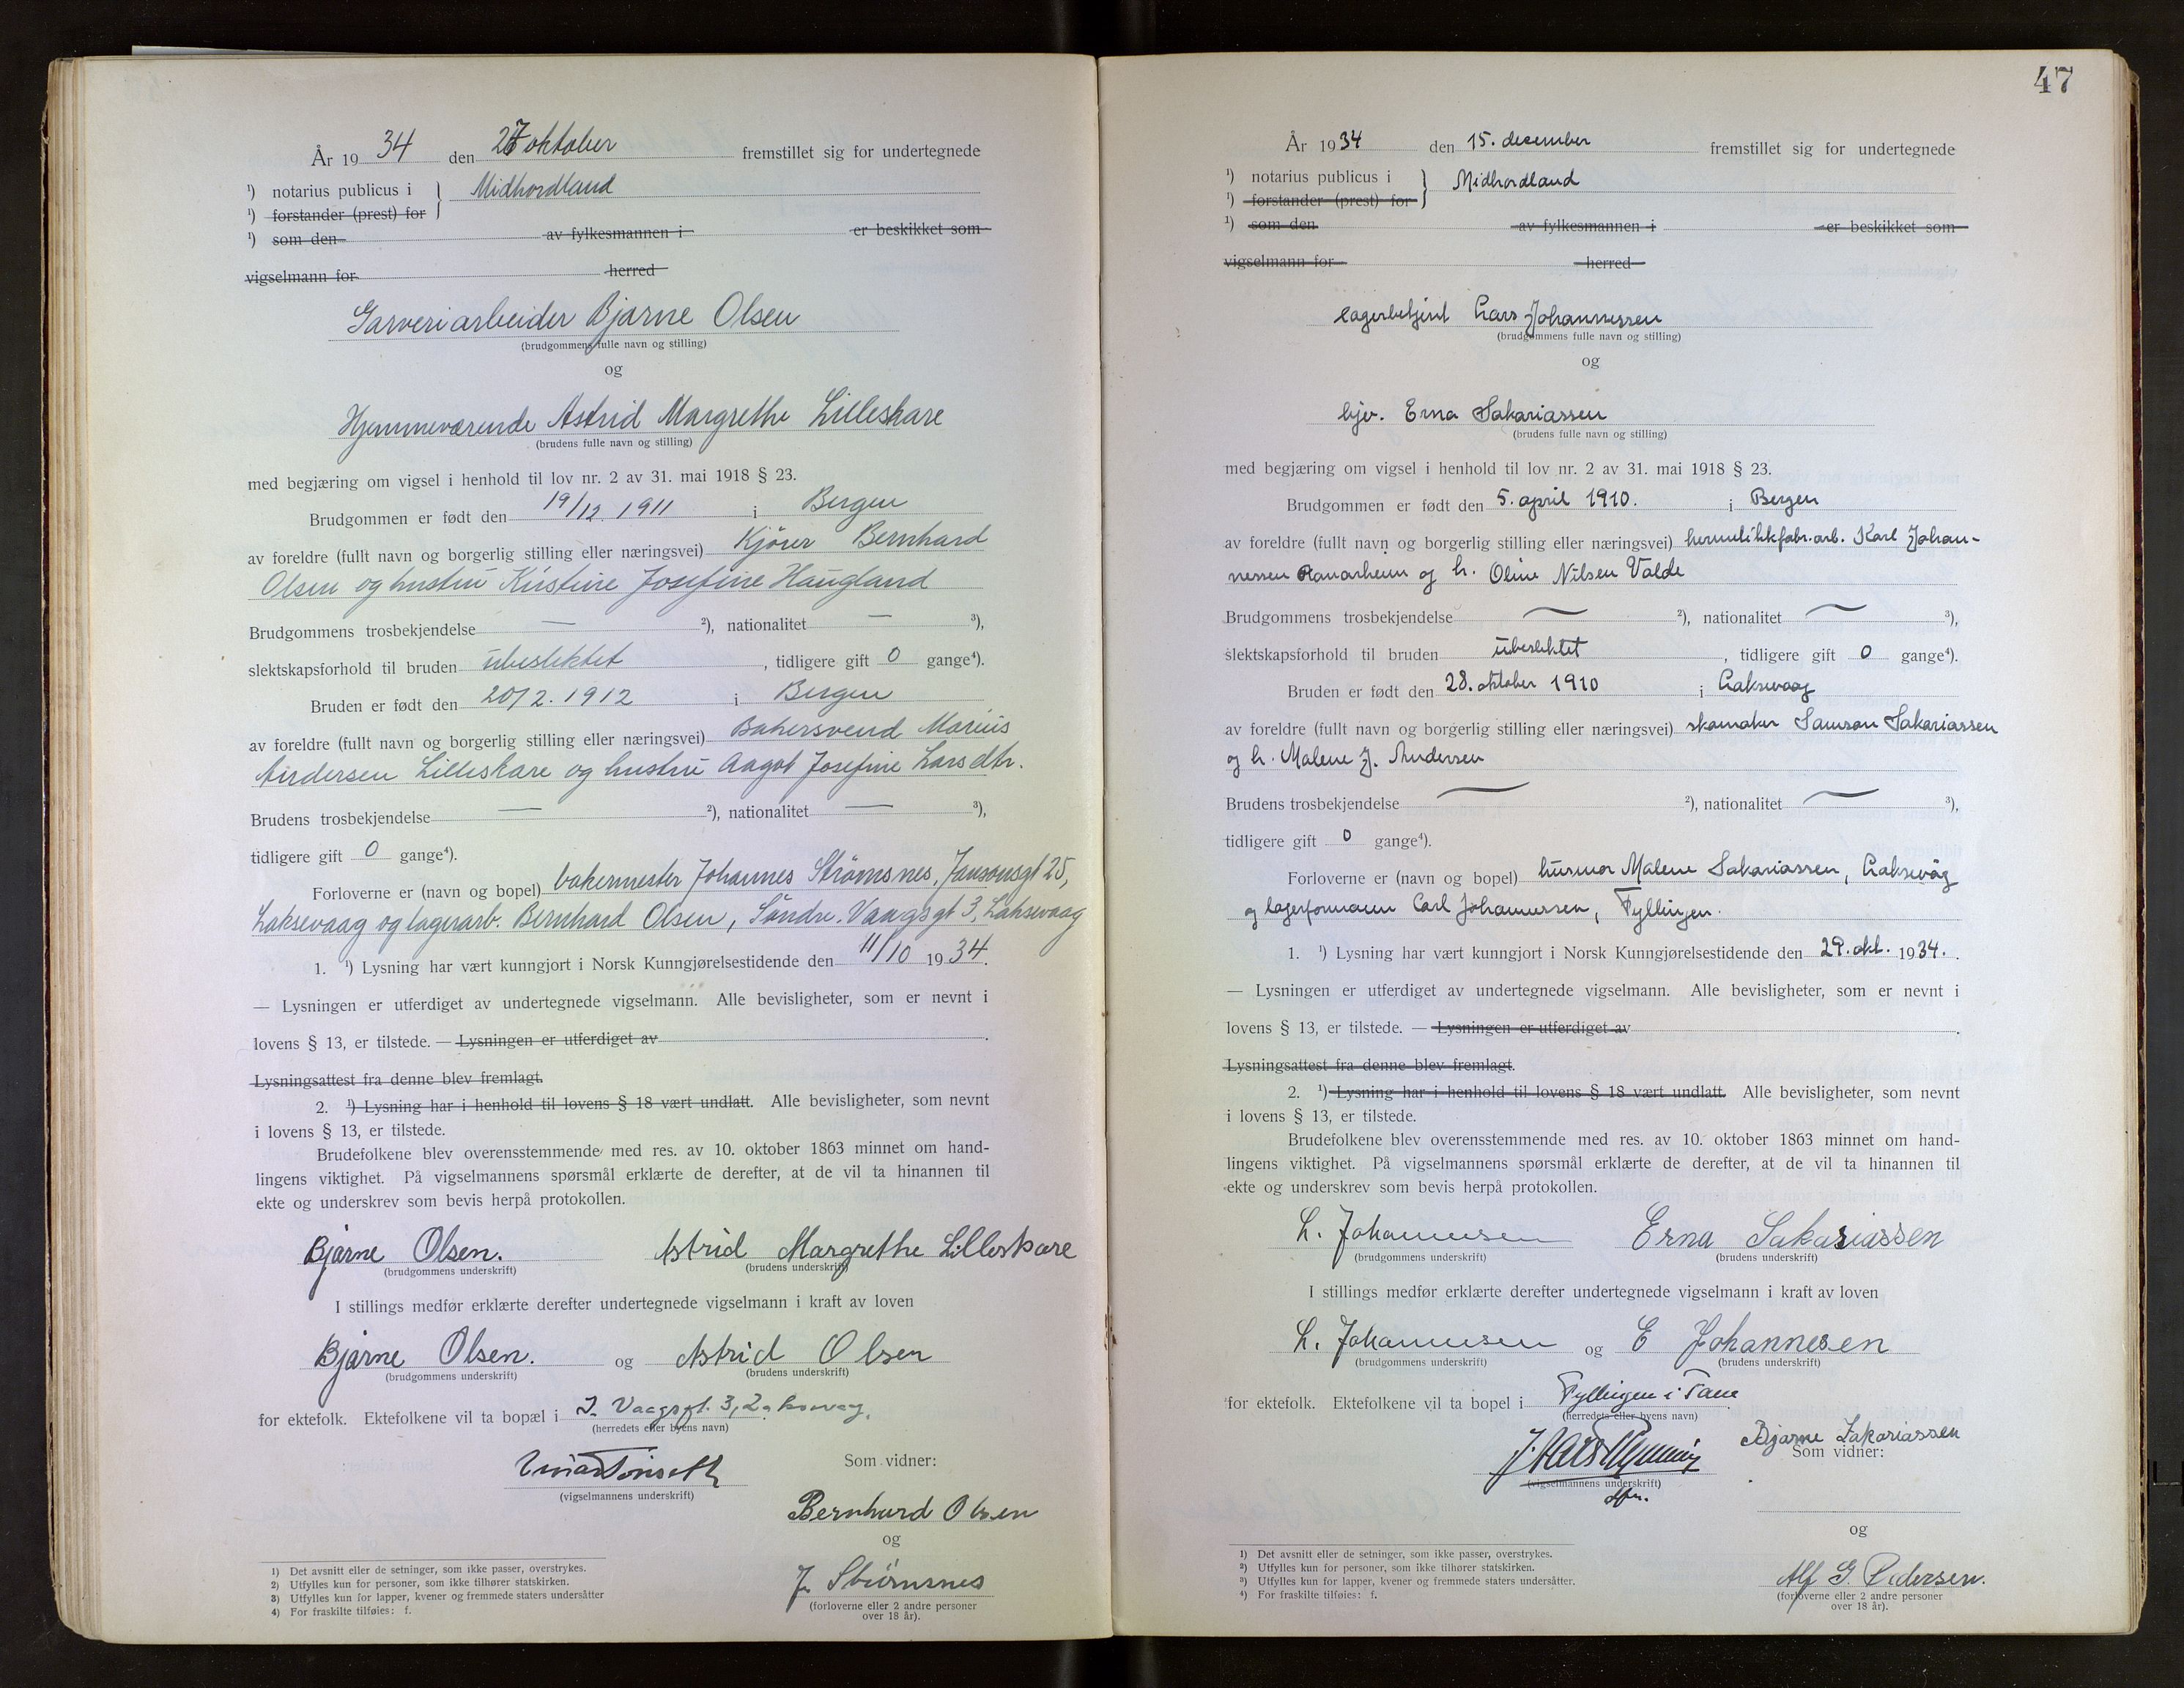 År 1934 den 27 oktober fremstillet sig for undertegnede
¹) notarius publicus i } Midhordland
¹) forstander (prest) for
¹) som den av fylkesmannen i er beskikket som
vigselmann for herred
Garveriarbeider Bjarne Olsen
(brudgommens fulle navn og stilling)
og
Hjemmeværende Astrid Margrethe Lilleskare
(brudens fulle navn og stilling)
med begjæring om vigsel i henhold til lov nr. 2 av 31. mai 1918 § 23.
Brudgommen er født den 19/12. 1911 i Bergen
av foreldre (fullt navn og borgerlig stilling eller næringsvei) Kjører Bernhard
Olsen og hustru Kristine Josefine Haugland
Brudgommens trosbekjendelse — ²), nationalitet — ³),
slektskapsforhold til bruden ubeslektet, tidligere gift 0 gange⁴).
Bruden er født den 20/2. 1912 i Bergen
av foreldre (fullt navn og borgerlig stilling eller næringsvei) Bakersvend Marius
Andersen Lilleskare og hustru Aagot Josefine Larsdtr.
Brudens trosbekjendelse — ²), nationalitet — ³),
tidligere gift 0 gange⁴).
Forloverne er (navn og bopel) bakermester Johannes Strømsnes, Jansonsgt 25,
Laksevaag og lagerarb. Bernhard Olsen, Søndre. Vaagsgt 3, Laksevaag
1. ¹) Lysning har vært kunngjort i Norsk Kunngjørelsestidende den 11/10 1934.
— Lysningen er utferdiget av undertegnede vigselmann. Alle bevisligheter, som er nevnt i
lovens § 13, er tilstede. — Lysningen er utferdiget av .
Lysningsattest fra denne blev fremlagt.
2. ¹) Lysning har i henhold til lovens § 18 vært undlatt. Alle bevisligheter, som nevnt
i lovens § 13, er tilstede.
Brudefolkene blev overensstemmende med res. av 10. oktober 1863 minnet om hand-
lingens viktighet. På vigselmannens spørsmål erklærte de derefter, at de vil ta hinannen til
ekte og underskrev som bevis herpå protokollen.
Bjarne Olsen. Astrid Margrethe Lilleskare
(brudgommens underskrift) (brudens underskrift)
I stillings medfør erklærte derefter undertegnede vigselmann i kraft av loven
Bjarne Olsen. og Astrid Olsen
(brudgommens underskrift) (brudens underskrift)
for ektefolk. Ektefolkene vil ta bopæl i S. Vaagsgt. 3, Laksevaag.
(herredets eller byens navn)
(vigselmannens underskrift)
Som vidner:
Bernhard Olsen
og
J. Strømsnes
(forloverne eller 2 andre personer
over 18 år).
1) Det avsnitt eller de setninger, som ikke passer, overstrykes.
2) Utfylles kun for personer, som ikke tilhører statskirken.
3) Utfylles kun for lapper, kvener og fremmede staters undersåtter
4) For fraskilte tilføies: f.
47
År 1934 den 15. desember fremstillet sig for undertegnede
¹) notarius publicus i } Midhordland
¹) forstander (prest) for
¹) som den av fylkesmannen i er beskikket som
vigselmann for herred
lagerbetjent Lars Johannessen
(brudgommens fulle navn og stilling)
og
hjv. Erna Sakariassen
(brudens fulle navn og stilling)
med begjæring om vigsel i henhold til lov nr. 2 av 31. mai 1918 § 23.
Brudgommen er født den 5. april 1910. i Bergen
av foreldre (fullt navn og borgerlig stilling eller næringsvei) hermetikkfabr.arb. Karl Johan-
nessen og h. Oline Nilsen Valde
Brudgommens trosbekjendelse — ²), nationalitet — ³),
slektskapsforhold til bruden ubeslektet, tidligere gift 0 gange⁴).
Bruden er født den 28. oktober 1910 i Laksevaag
av foreldre (fullt navn og borgerlig stilling eller næringsvei) skomaker Samson Sakariassen
og h. Malene J. Andersen
Brudens trosbekjendelse — ²), nationalitet — ³),
tidligere gift 0 gange⁴).
Forloverne er (navn og bopel) husmor Malene Sakariassen, Laksevåg
og lagerformann Carl Johannessen, Fyllingen.
1. ¹) Lysning har vært kunngjort i Norsk Kunngjørelsestidende den 29. okt. 1934.
— Lysningen er utferdiget av undertegnede vigselmann. Alle bevisligheter, som er nevnt i
lovens § 13, er tilstede. — Lysningen er utferdiget av .
Lysningsattest fra denne blev fremlagt.
2. ¹) Lysning har i henhold til lovens § 18 vært undlatt. Alle bevisligheter, som nevnt
i lovens § 13, er tilstede.
Brudefolkene blev overensstemmende med res. av 10. oktober 1863 minnet om hand-
lingens viktighet. På vigselmannens spørsmål erklærte de derefter, at de vil ta hinannen til
ekte og underskrev som bevis herpå protokollen.
L. Johannessen Erna Sakariassen
(brudgommens underskrift) (brudens underskrift)
I stillings medfør erklærte derefter undertegnede vigselmann i kraft av loven
L. Johannessen og E Johannesen
(brudgommens underskrift) (brudens underskrift)
for ektefolk. Ektefolkene vil ta bopel i Fyllingen i Fane
(herredets eller byens navn)
Bjarne Zakariassen
Som vidner:
(vigselmannens underskrift)
og
Alf G. Pedersen.
(forloverne eller 2 andre personer
over 18 år).
¹) Det avsnitt eller de setninger, som ikke passer, overstrykes.
²) Utfylles kun for personer, som ikke tilhører statskirken.
³) Utfylles kun for lapper, kvener og fremmede staters undersåtter.
⁴) For fraskilte tilføies: f.